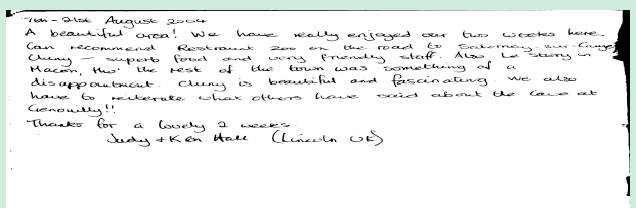 7th - 21st August 2004
A beautiful area! We have really enjoyed our two weeks here.
Can recommend Restraunt 200 on the road to Salornay-sur-Guye,
Cluny - superb food and very friendly staff. Also, Le Story in
Macon, tho' the rest of the town was something of a
disappointment. Cluny is beautiful and fascinating. We also
have to reiterate what others have said about the cave at
Genouilly!!
Thanks for a lovely 2 weeks.
Judy + Ken Hall (Lincoln UK)